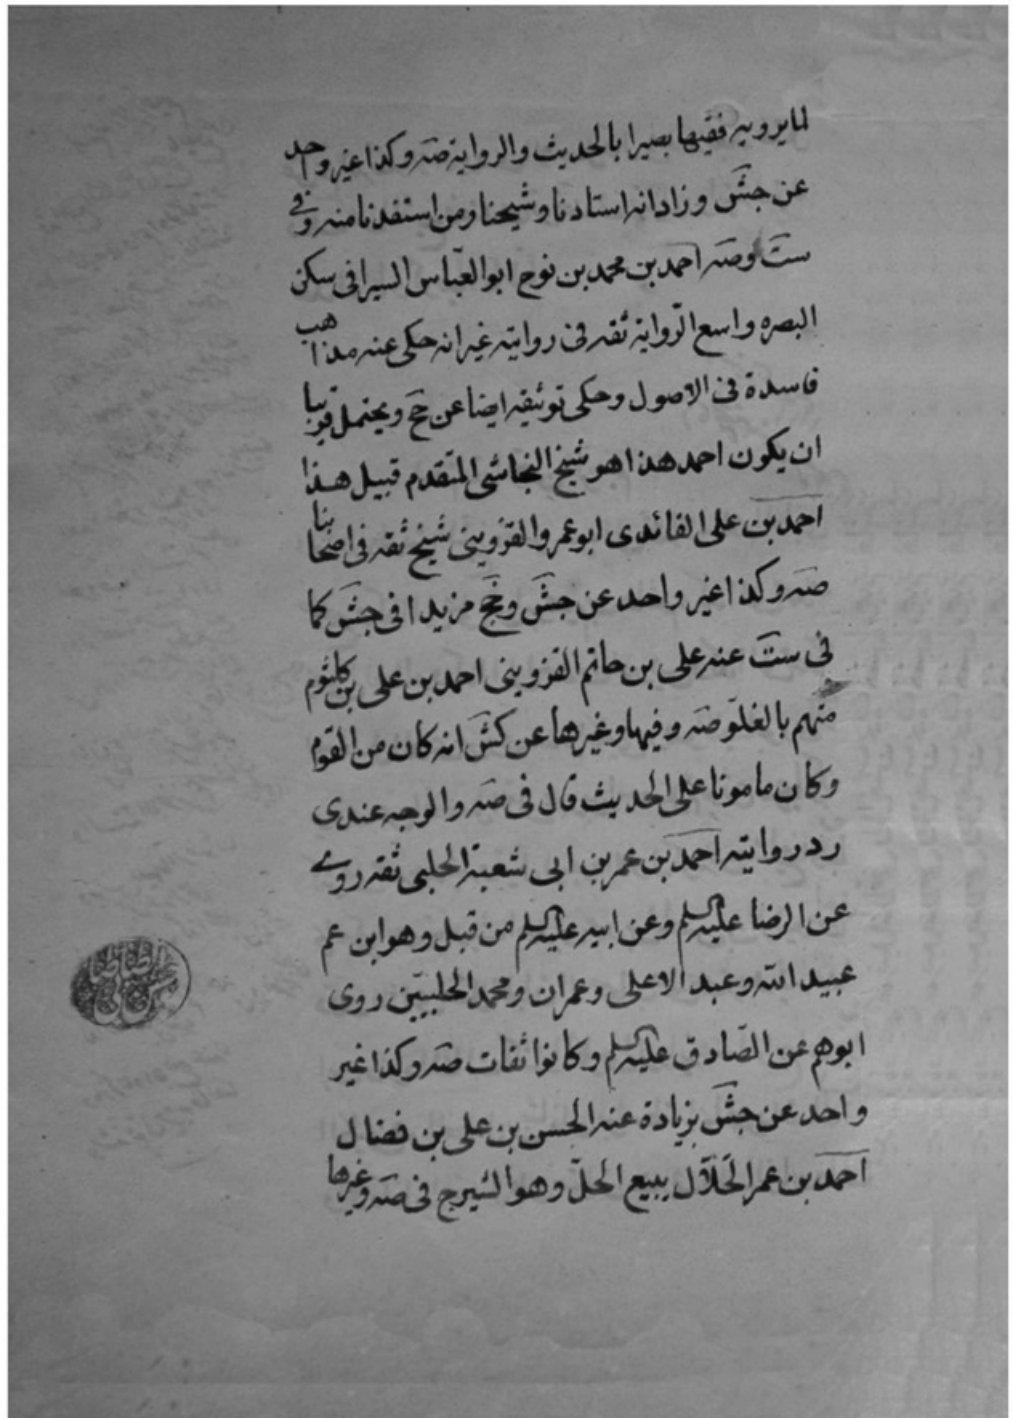 لما يرويه فقيها بصيرا بالحديث والرواية صه وكذا غير واحد
عن جش وزاد انه استادنا وشيخنا ومن استفدنا منه وفي
ست وصه احمد بن محمد بن نوح ابو العباس السيرافى سكن
البصره واسع الرّواية ثقه فى روايته غير انه حكى عنه مذاهب
فاسدة فى الاصول وحكى توثيقه ايضا عن جخ ويحتمل قريبا
ان يكون احمد هذا هو شيخ النجاشى المتقدم قبيل هذا
احمد بن على الفائدى ابو عمرو القزوينى شيخ ثقه فى اصحابنا
صه وكذا غير واحد عن جش وجخ مزيدا فى جش كما
فى ست عنه على بن حاتم القزوينى احمد بن على بن كلثوم
متهم بالغلوّ صه وفيها وغيرها عن كش انه كان من القوم
وكان مامونا على الحديث قال فى صه والوجه عندى
رد روايته احمد بن عمر بن ابى شعبة الحلبى ثقه روى
عن الرضا عليه السلم وعن ابيه عليه السلم من قبل وهو ابن عم
عبيد الله وعبد الاعلى وعمران ومحمد الحلبيّين روى
ابوهم عن الصّادق عليه السلم وكانوا ثقات صه وكذا غير
واحد عن جش بزيادة عنه الحسن بن على بن فضال
احمد بن عمر الحَلّال يبيع الحلّ وهو الشيرج فى صه وغيرها